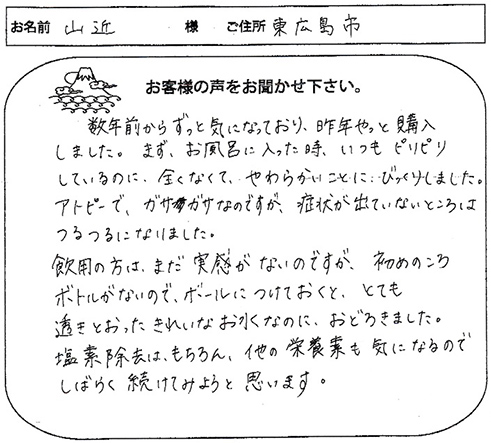 お名前 山近 様 ご住所 東広島市
お客様の声をお聞かせ下さい。
数年前からずっと気になっており、昨年やっと購入
しました。まず、お風呂に入った時、いつもピリピリ
しているのに、全くなくて、やわらかいことに…びっくりしました。
アトピーで、ガサガサなのですが、症状が出ていないところは
つるつるになりました。
飲用の方は、まだ実感がないのですが、初めのころ
ボトルがないので、ボールにつけておくと、とても
透きとおったきれいなお水なのに、おどろきました。
塩素除去は、もちろん、他の栄養素も気になるので
しばらく続けてみようと思います。